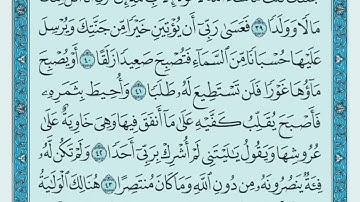 مَالًا وَوَلَدًا ٣٩ فَعَسَىٰ رَبِّي أَن يُؤْتِيَنِ خَيْرًا مِّن جَنَّتِكَ وَيُرْسِلَ
عَلَيْهَا حُسْبَانًا مِّنَ السَّمَاءِ فَتُصْبِحَ صَعِيدًا زَلَقًا ٤٠ أَوْ يُصْبِحَ
مَاؤُهَا غَوْرًا فَلَن تَسْتَطِيعَ لَهُ طَلَبًا ٤١ وَأُحِيطَ بِثَمَرِهِ
فَأَصْبَحَ يُقَلِّبُ كَفَّيْهِ عَلَىٰ مَا أَنفَقَ فِيهَا وَهِيَ خَاوِيَةٌ عَلَىٰ
عُرُوشِهَا وَيَقُولُ يَٰلَيْتَنِي لَمْ أُشْرِكْ بِرَبِّي أَحَدًا ٤٢ وَلَمْ تَكُن لَّهُ
فِئَةٌ يَنصُرُونَهُ مِن دُونِ اللَّهِ وَمَا كَانَ مُنتَصِرًا ٤٣ هُنَالِكَ الْوَلَٰيَةُ